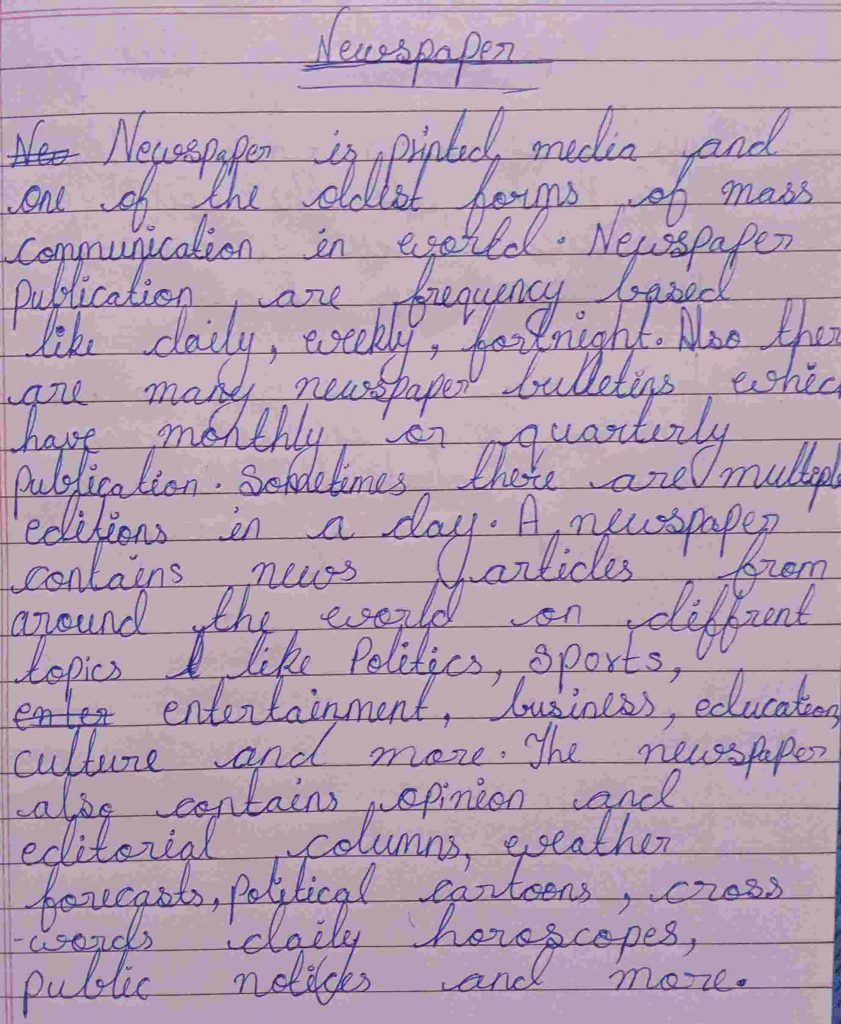 Newspaper
Neo Newspaper is printed media and
one of the oldest forms of mass
communication in world. Newspaper
publication are frequency based
like daily, weekly, fortnight. Also ther
are many newspaper bulletins whic
have monthly or quarterly
publication. Sometimes there are multipl
editions in a day. A newspaper
contains news articles from
around the world on diffrent
topics like Politics, sports,
enter entertainment, business, education,
culture and more. The newspaper
also contains opinion and
editorial columns, weather
forecasts, political cartoons, cross
-words daily horoscopes,
public notices and more.